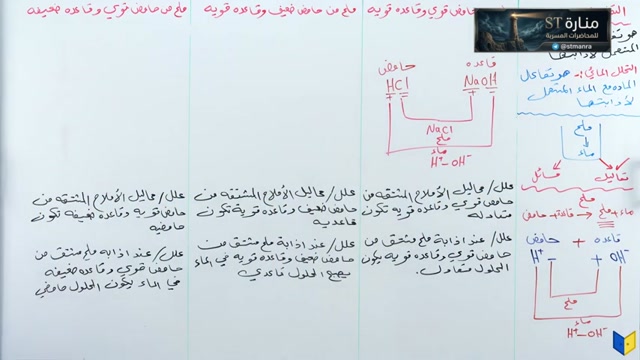 منارة ST
للمحاضرات المسربة
@stmanra
التحلل المائي:- هو تفاعل
المادة مع الماء المتحلل
لإذابتها
ملح
ماء
تفاعل
سائل
ملح
ماء + ملح → قاعدة + حامض
قاعدة + حامض
H⁺ - + OH⁻
ملح
ماء
H⁺-OH⁻
ملح من حامض قوي وقاعدة قوية
حامض
قاعدة
HCl
NaOH
NaCl
ملح
ماء
H⁺-OH⁻
علل/ محاليل الأملاح المشتقة من
حامض قوي وقاعدة قوية تكون
متعادلة
علل/ عند اذابة ملح مشتق من
حامض قوي وقاعدة قوية يكون
المحلول متعادل.
ملح من حامض ضعيف وقاعدة قوية
علل/ محاليل الأملاح المشتقة من
حامض ضعيف وقاعدة قوية تكون
قاعدية
علل/ عند اذابة ملح مشتق من
حامض ضعيف وقاعدة قوية في الماء
يصبح المحلول قاعدي
ملح من حامض قوي وقاعدة ضعيفة
علل/ محاليل الأملاح المشتقة من
حامض قوي وقاعدة ضعيفة تكون
حامضية
علل/ عند اذابة ملح مشتق من
حامض قوي وقاعدة ضعيفة
في الماء يكون المحلول حامضي